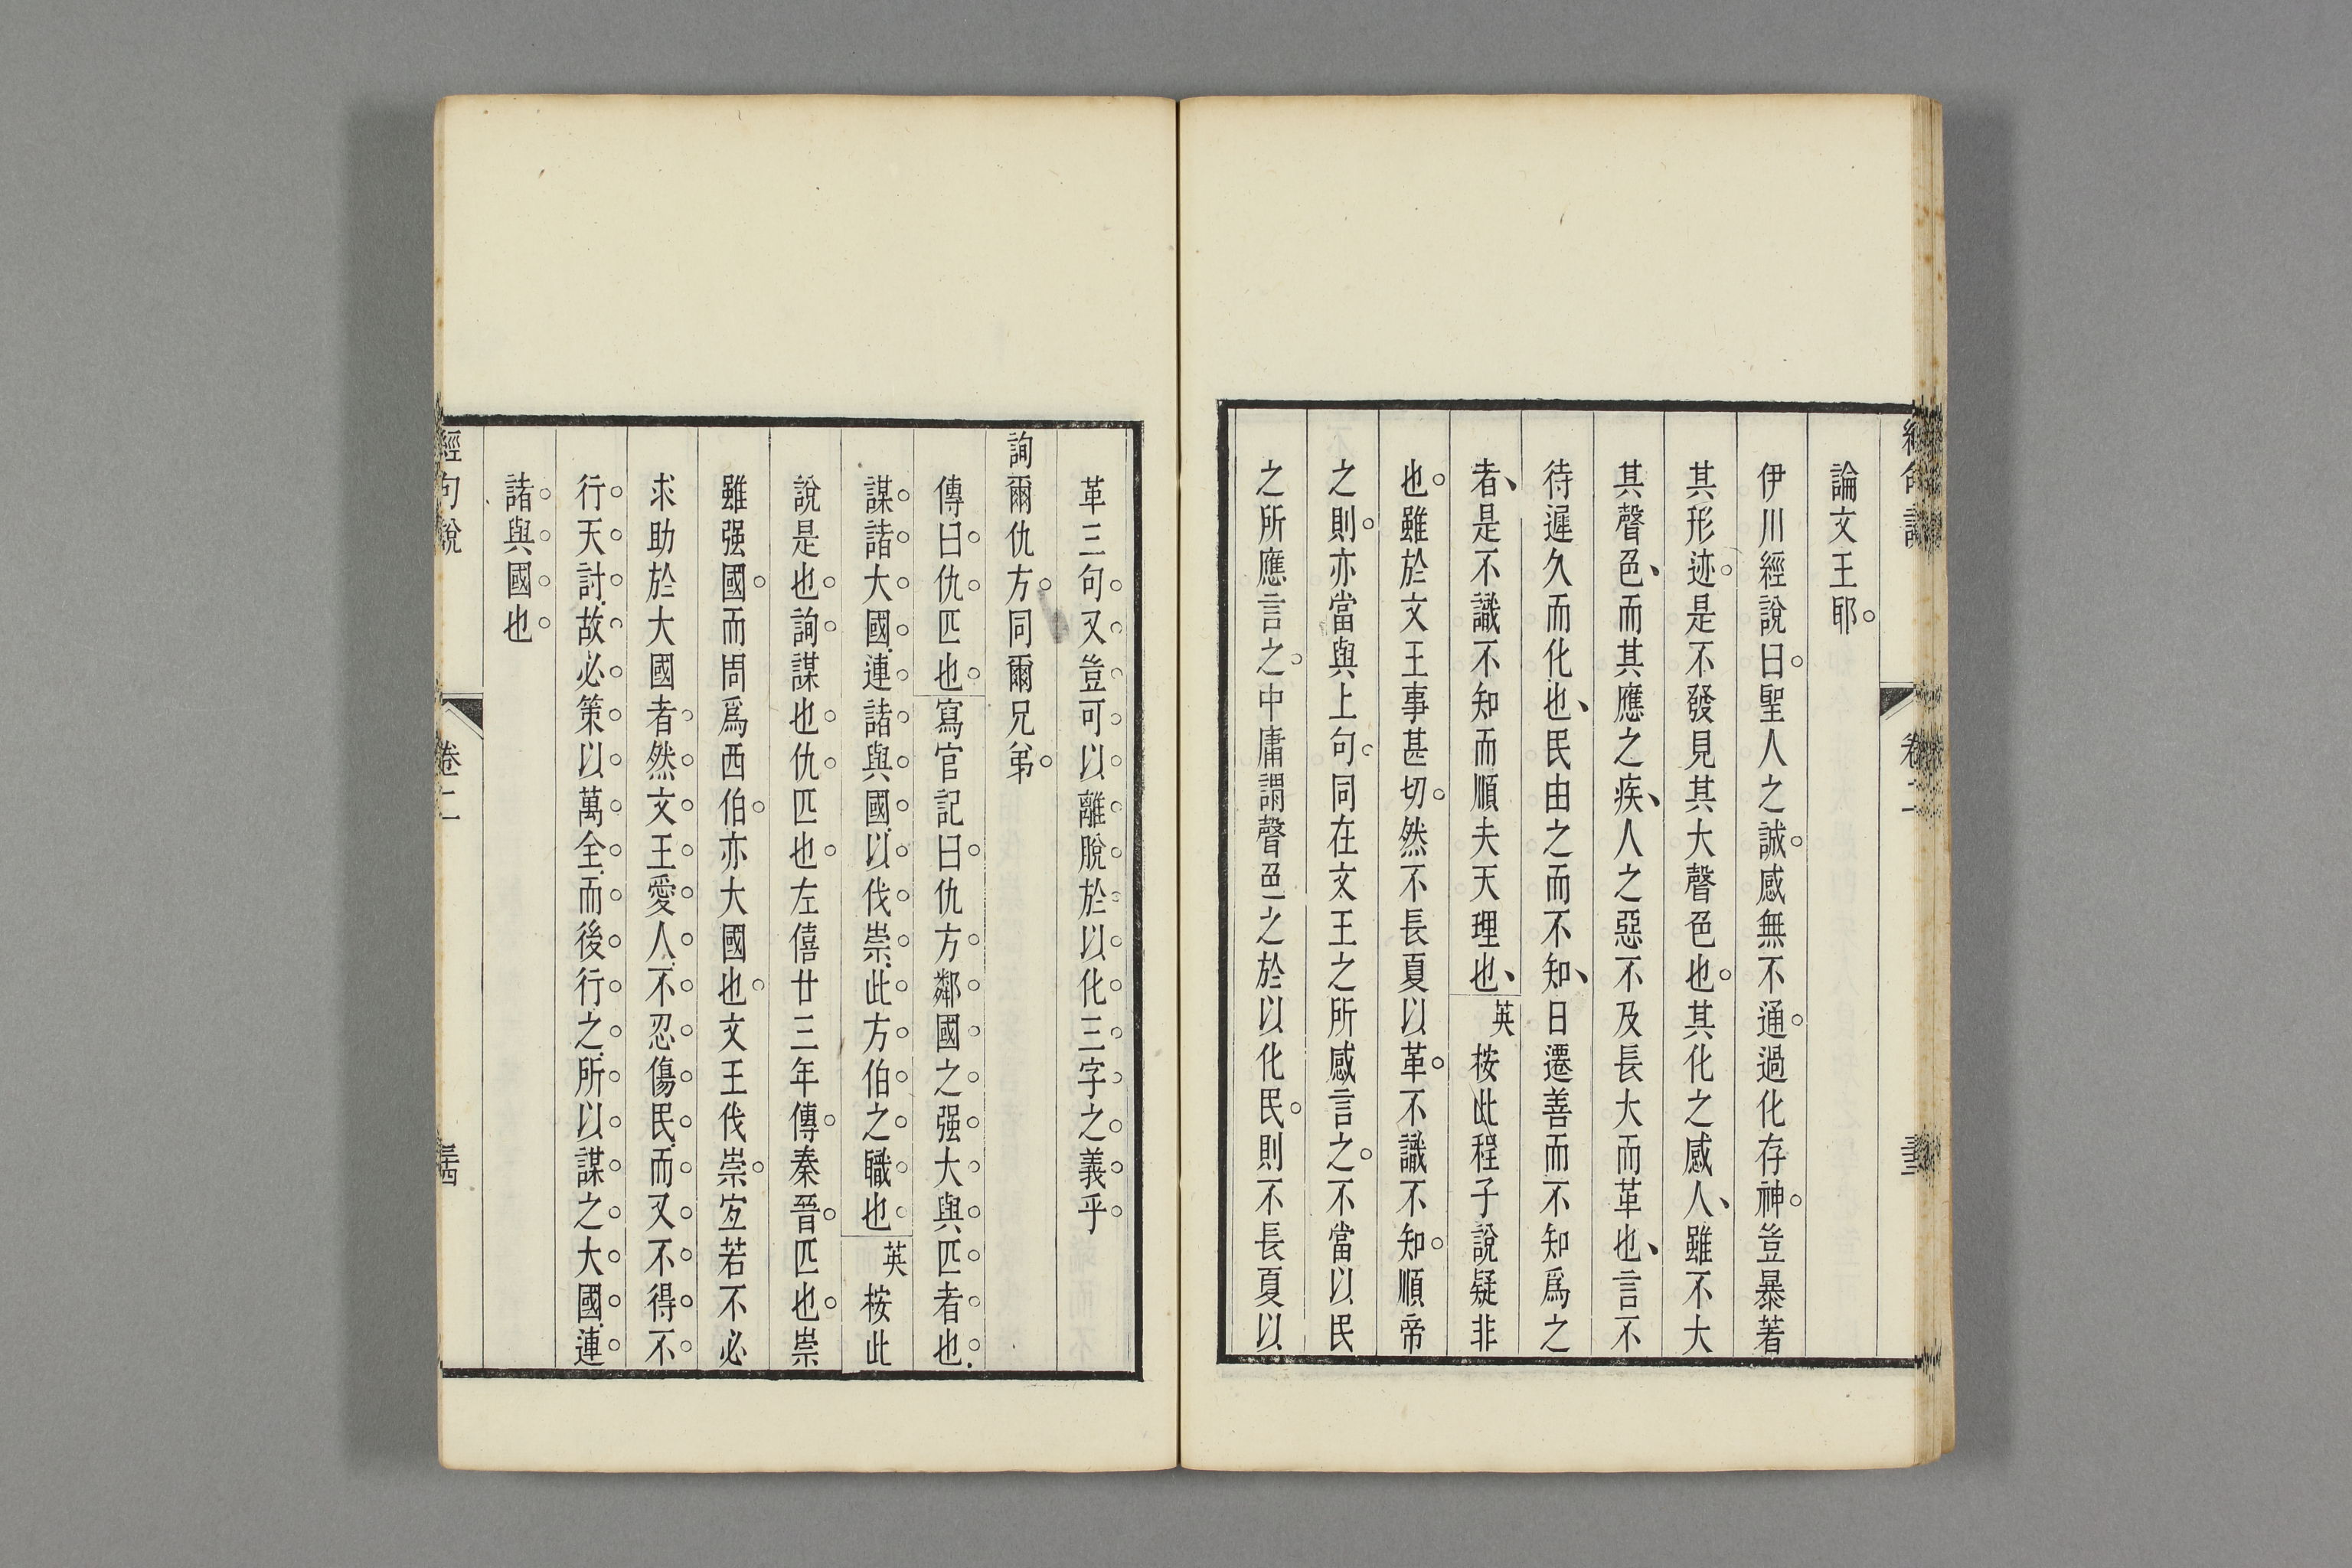 論文王耶
伊川經說曰聖人之誠感無不通過化存神豈暴著
其形迹是不發見其大聲色也其化之感人雖不大
其聲色而其應之疾人之惡不及長大而革也言不
待遲久而化也民由之而不知日遷善而不知爲之
者是不識不知而順夫天理也英按此程子說疑非
也雖於文王事甚切然不長夏以革不識不知順帝
之則亦當與上句同在文王之所感言之不當以民
之所應言之中庸謂聲色之於以化民則不長夏以
革三句又豈可以離脫於以化三字之義乎
詢爾仇方同爾兄弟
傳曰仇匹也寫官記曰仇方鄰國之强大與匹者也
謀諸大國連諸與國以伐崇此方伯之職也英按此
說是也詢謀也仇匹也左僖廿三年傳秦晉匹也崇
雖强國而周爲西伯亦大國也文王伐崇宐若不必
求助於大國者然文王愛人不忍傷民而又不得不
行天討故必策以萬全而後行之所以謀之大國連
諸與國也
經句說 卷二